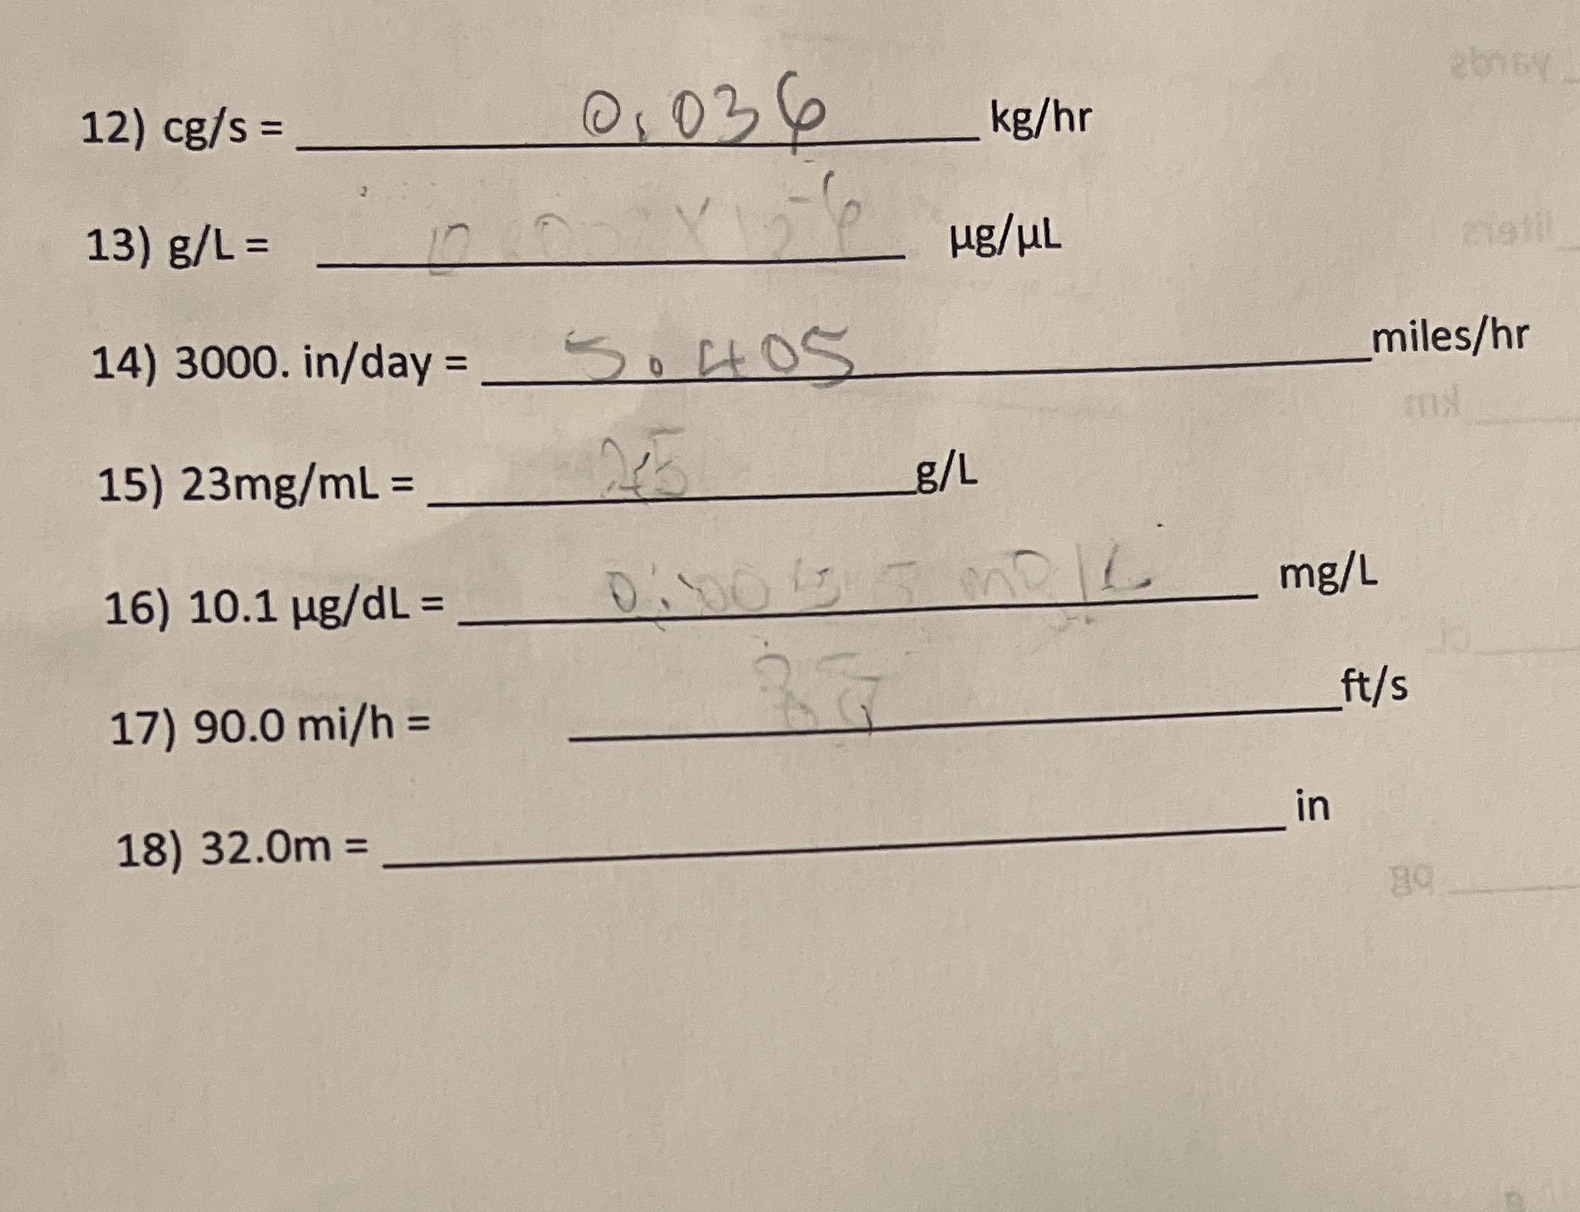 12) cg/s = 0.036 kg/hr
13) g/L = 10 x 10-6 µg/µL
14) 3000. in/day = 5.405 miles/hr
15) 23mg/mL = g/L
16) 10.1 µg/dL = mg/L mg/L
17) 90.0 mi/h = ft/s
18) 32.0m = in
yards
liters
km
cl
pg